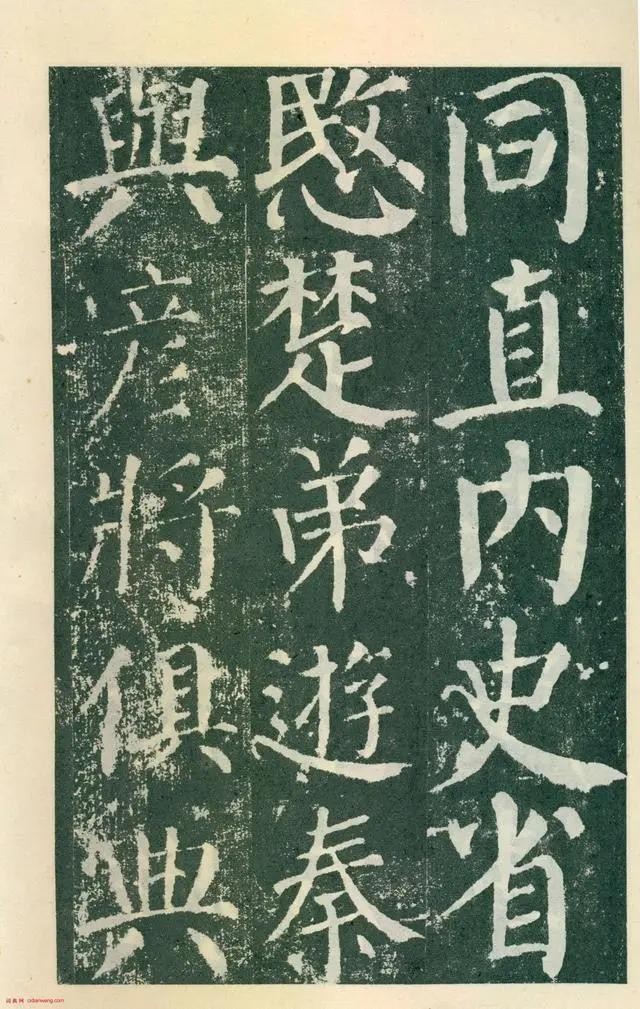 同直内史省
愍楚弟遊秦
與彦將俱典
词典网 cidianwang.com